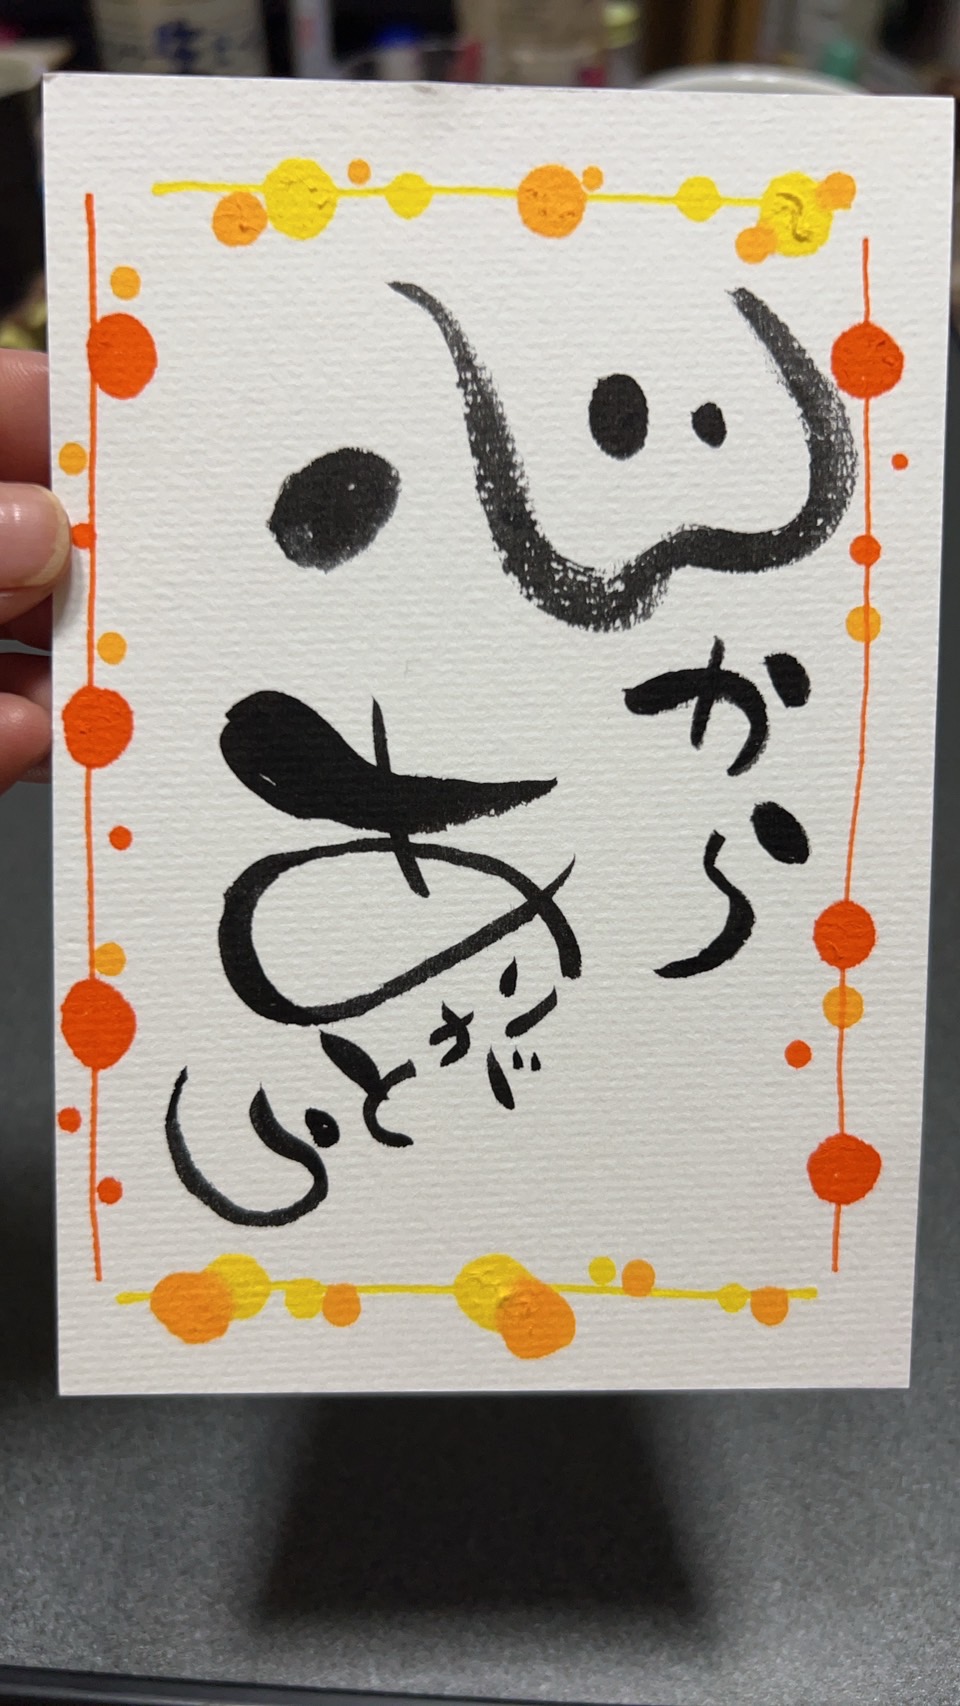 心から
ありがとう